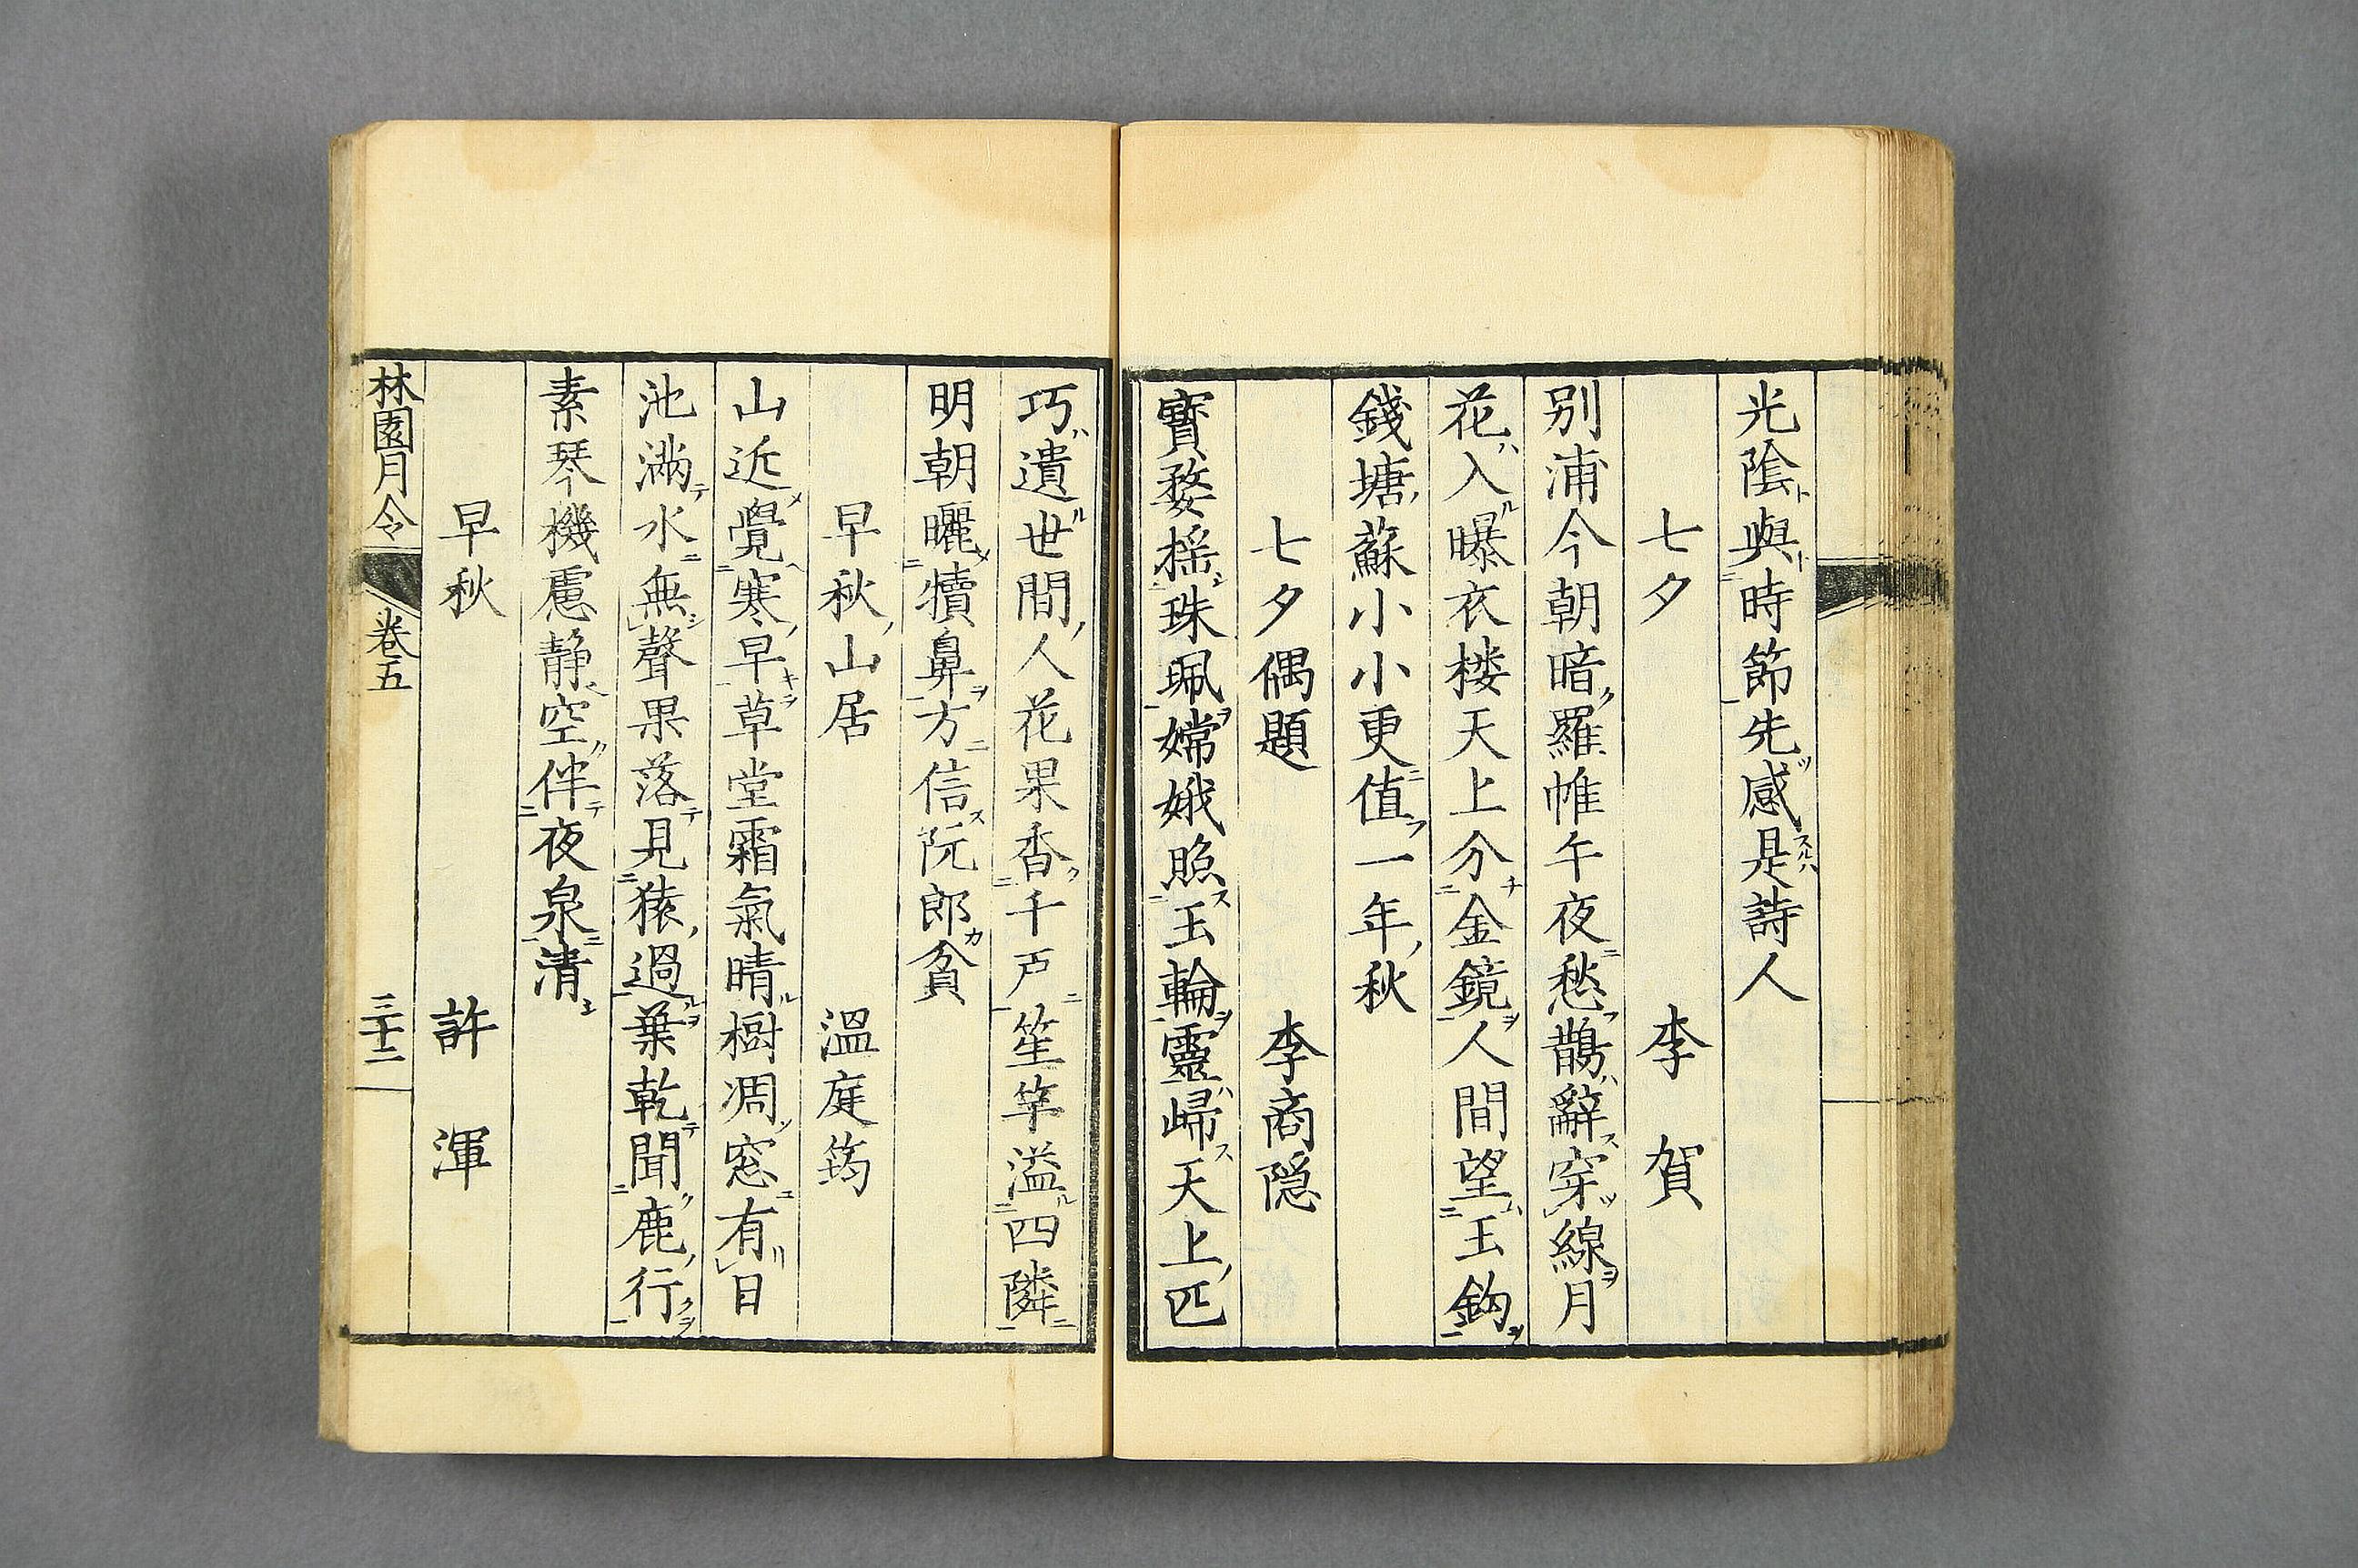 光陰與時節先感是詩人
七夕　李賀
別浦今朝暗羅帷午夜愁鵲辭穿線月
花入曝衣楼天上分金鏡人間望玉鈎
錢塘蘇小小更值一年秋
七夕偶題　李商隠
寶婺揺珠珮嫦娥照玉輪靈歸天上匹
巧遺世間人花果香千戸笙竽溢四隣
明朝曬犢鼻方信阮郎貧
早秋山居　溫庭筠
山近覺寒早草堂霜氣晴樹凋窓有日
池滿水無聲果落見猿過葉乾聞鹿行
素琴機慮静空伴夜泉清
早秋　許渾
林園月令　巻五　三十二